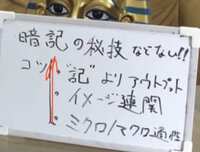 暗記の秘技などない!!
コツ "記"よりアウトプット
・イメージ連関
・ミクロ/マクロ適性